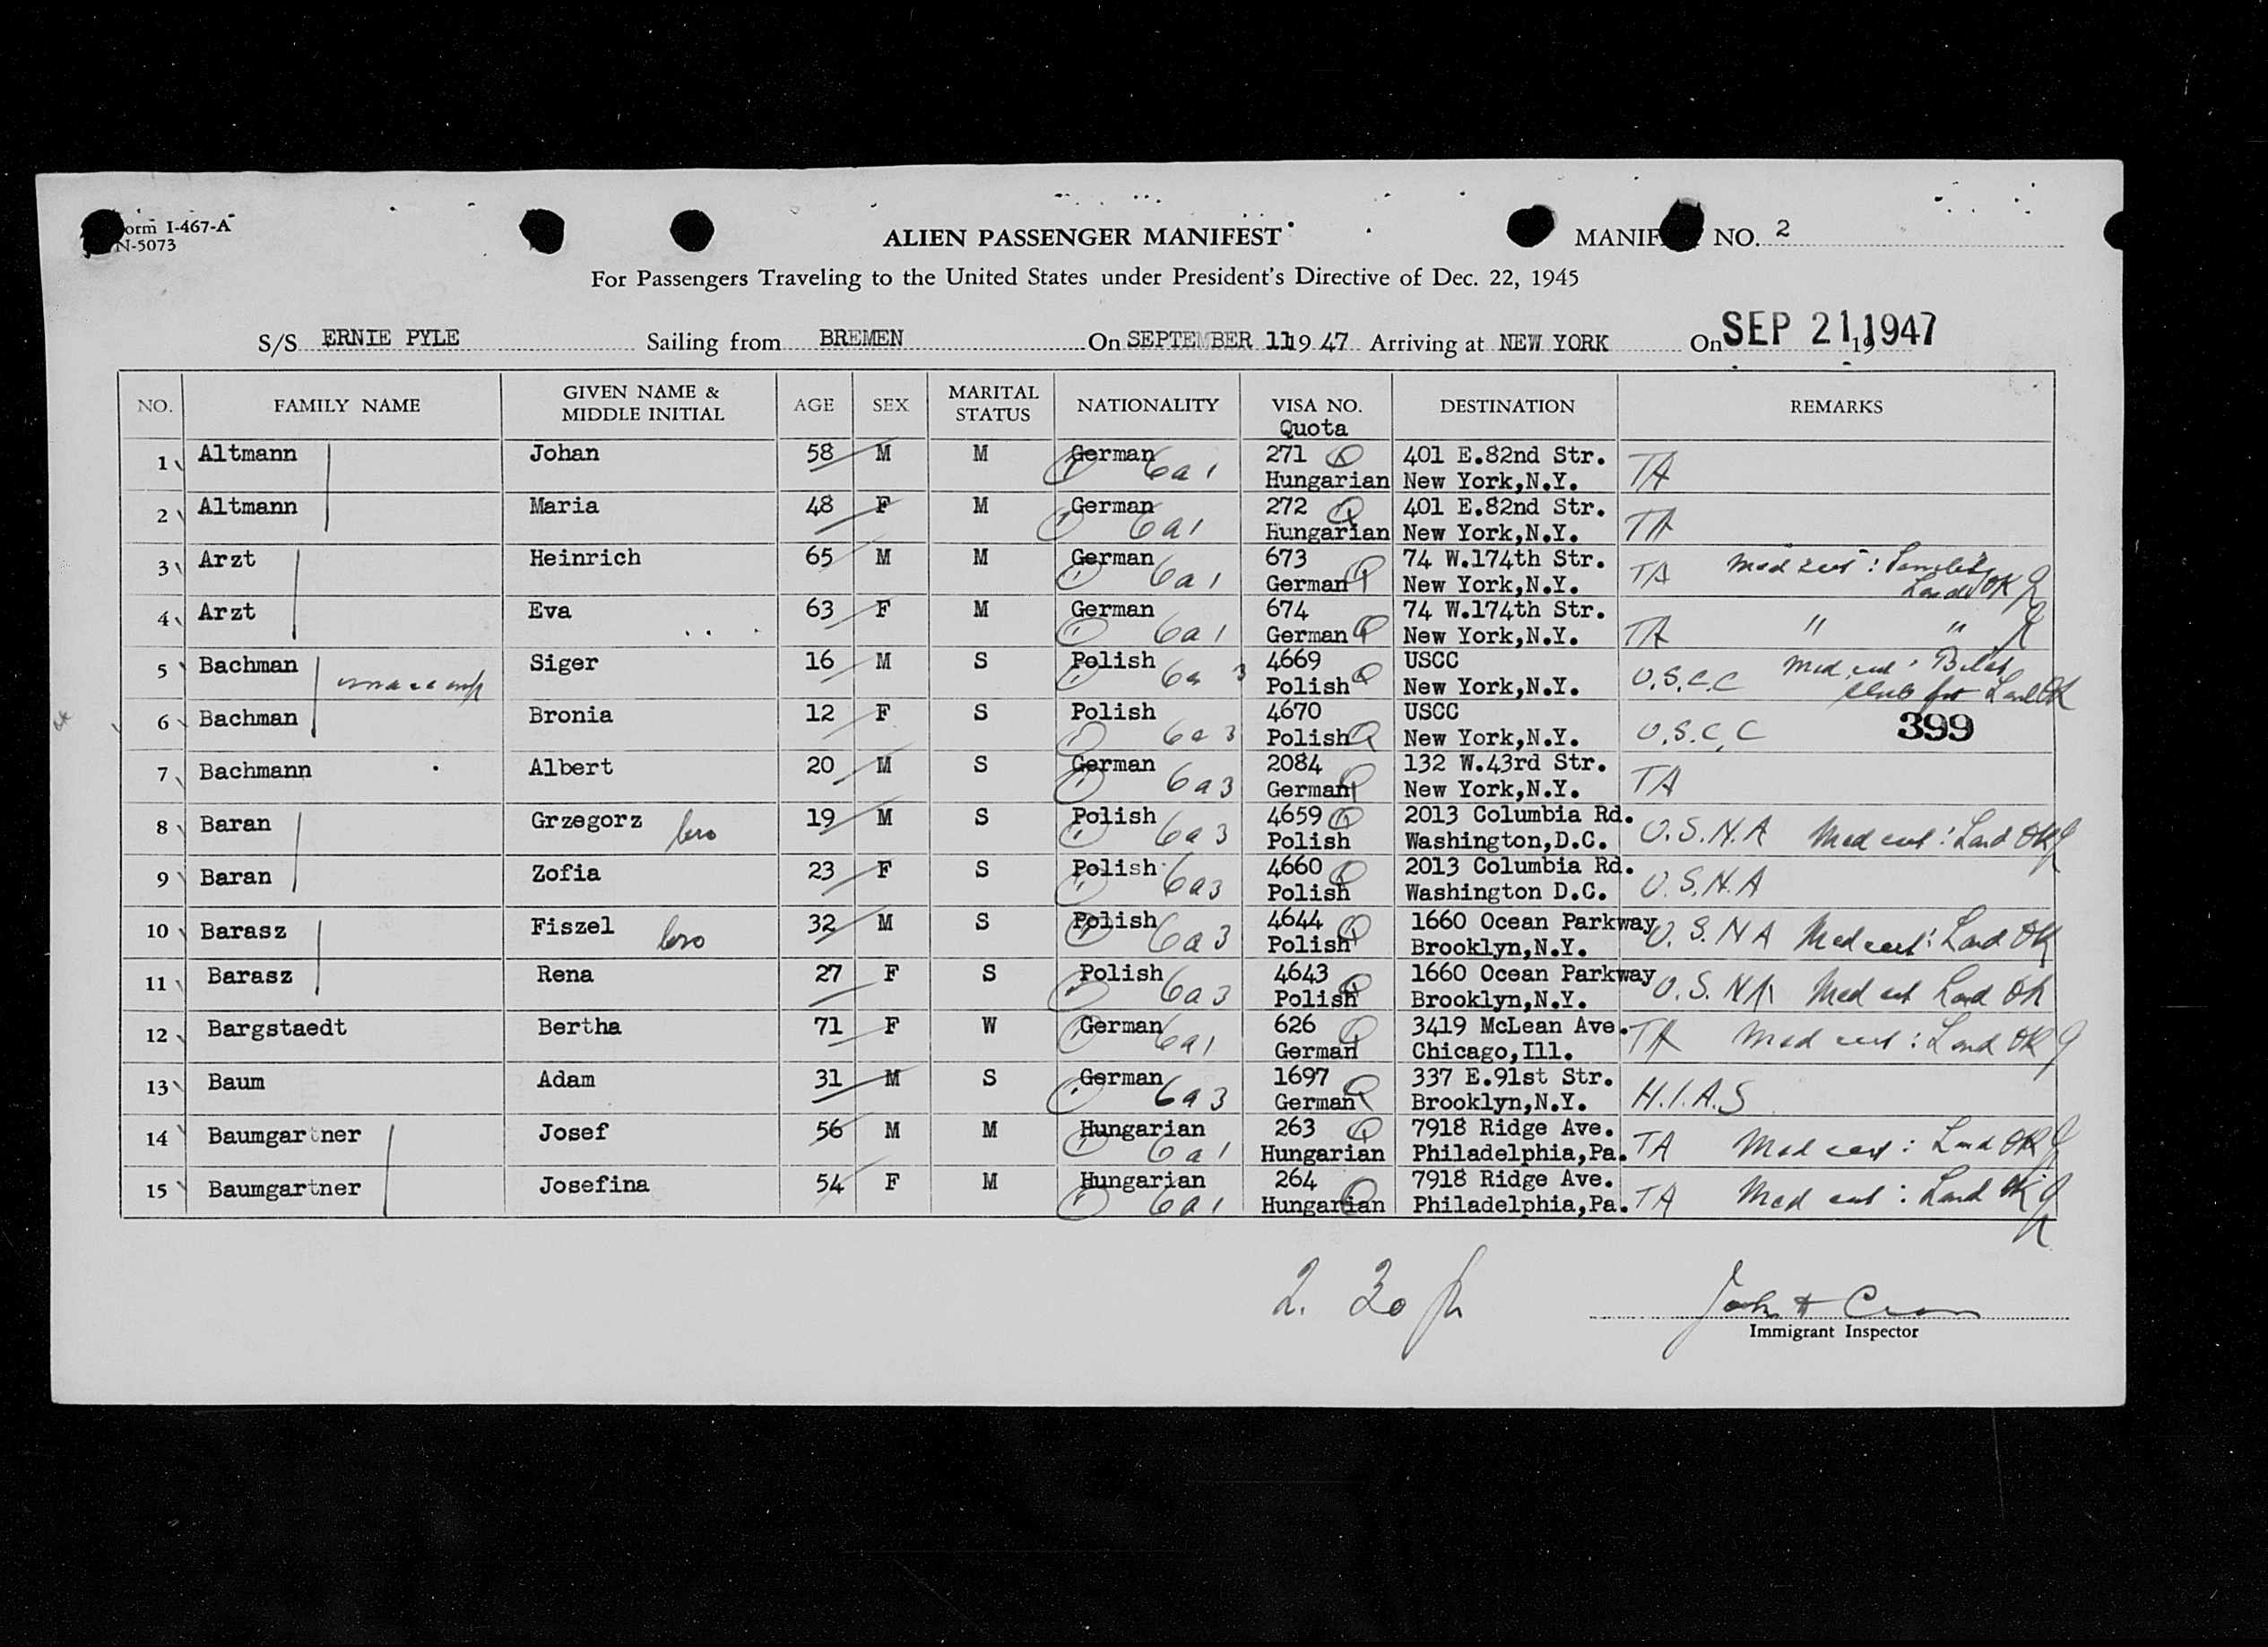 orm I-467-A
N-5073
ALIEN PASSENGER MANIFEST
MANIF NO. 2
For Passengers Traveling to the United States under President's Directive of Dec. 22, 1945
S/S ERNIE PYLE Sailing from BREMEN On SEPTEMBER 11 19 47 Arriving at NEW YORK On SEP 21 1947
NO. FAMILY NAME GIVEN NAME & MIDDLE INITIAL AGE SEX MARITAL STATUS NATIONALITY VISA NO. Quota DESTINATION REMARKS
1 Altmann Johan 58 M M German 6a1 271 Q 401 E.82nd Str. TA
Hungarian New York,N.Y.
2 Altmann Maria 48 F M German 6a1 272 Q 401 E.82nd Str. TA
Hungarian New York,N.Y.
3 Arzt Heinrich 65 M M German 6a1 673 74 W.174th Str. TA Med cert :
German Q New York,N.Y. Land OK
4 Arzt Eva 63 F M German 6a1 674 74 W.174th Str. TA " "
German Q New York,N.Y.
5 Bachman Siger 16 M S Polish 6a3 4669 USCC U.S.C.C Med cert
Polish Q New York,N.Y. Land OK
6 Bachman Bronia 12 F S Polish 6a3 4670 USCC U.S.C.C 399
Polish Q New York,N.Y.
7 Bachmann Albert 20 M S German 6a3 2084 132 W.43rd Str. TA
German Q New York,N.Y.
8 Baran Grzegorz bro 19 M S Polish 6a3 4659 Q 2013 Columbia Rd. U.S.N.A Med cert : Land OK
Polish Washington,D.C.
9 Baran Zofia 23 F S Polish 6a3 4660 Q 2013 Columbia Rd. U.S.N.A
Polish Washington D.C.
10 Barasz Fiszel bro 32 M S Polish 6a3 4644 Q 1660 Ocean Parkway U.S.NA Med cert : Land OK
Polish Brooklyn,N.Y.
11 Barasz Rena 27 F S Polish 6a3 4643 Q 1660 Ocean Parkway U.S.NA Med cert Land OK
Polish Brooklyn,N.Y.
12 Bargstaedt Bertha 71 F W German 6a1 626 Q 3419 McLean Ave. TA Med cert : Land OK
German Chicago,Ill.
13 Baum Adam 31 M S German 6a3 1697 337 E.91st Str. H.I.A.S
German Q Brooklyn,N.Y.
14 Baumgartner Josef 56 M M Hungarian 6a1 263 Q 7918 Ridge Ave. TA Med cert : Land OK
Hungarian Philadelphia,Pa.
15 Baumgartner Josefina 54 F M Hungarian 6a1 264 Q 7918 Ridge Ave. TA Med cert : Land OK
Hungarian Philadelphia,Pa.
2. 30 p
John
Immigrant Inspector